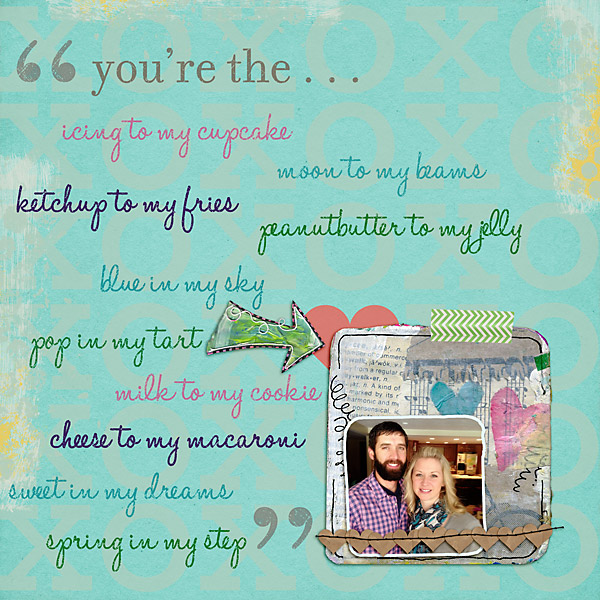 “ you’re the . . .
icing to my cupcake
moon to my beams
ketchup to my fries
peanutbutter to my jelly
blue in my sky
pop in my tart
milk to my cookie
cheese to my macaroni
sweet in my dreams
spring in my step ”